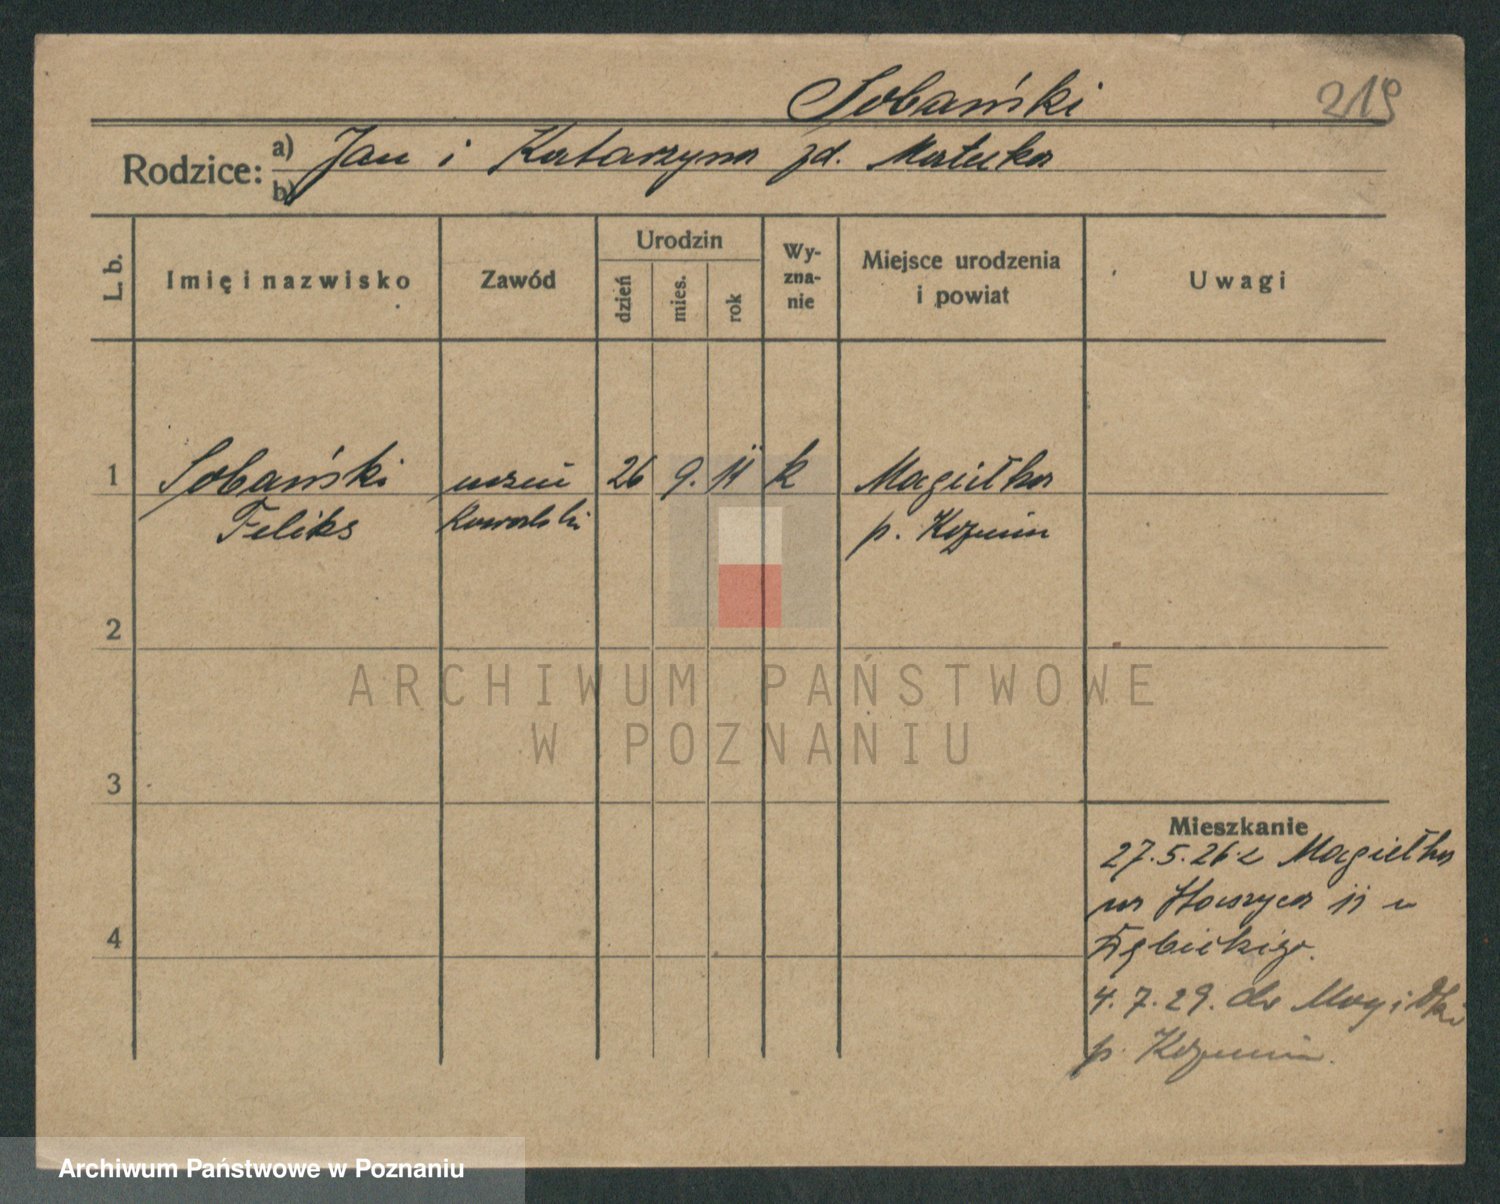 Sobański
219
Rodzice: a) Jan i Katarzyna zd. Małecka
b)
L. b.
Imię i nazwisko
Zawód
Urodzin
dzień
mies.
rok
Wy-
zna-
nie
Miejsce urodzenia
i powiat
Uwagi
1
Sobański
Feliks
uczeń
kowalski
26
9.
11
k
Magiełka
p. Kozmin
2
3
4
Mieszkanie
27.5.26 z Magiełka
11 u
4.7.29. do Magiełki
p. Kozmin.
ARCHIWUM PAŃSTWOWE
W POZNANIU
Archiwum Państwowe w Poznaniu